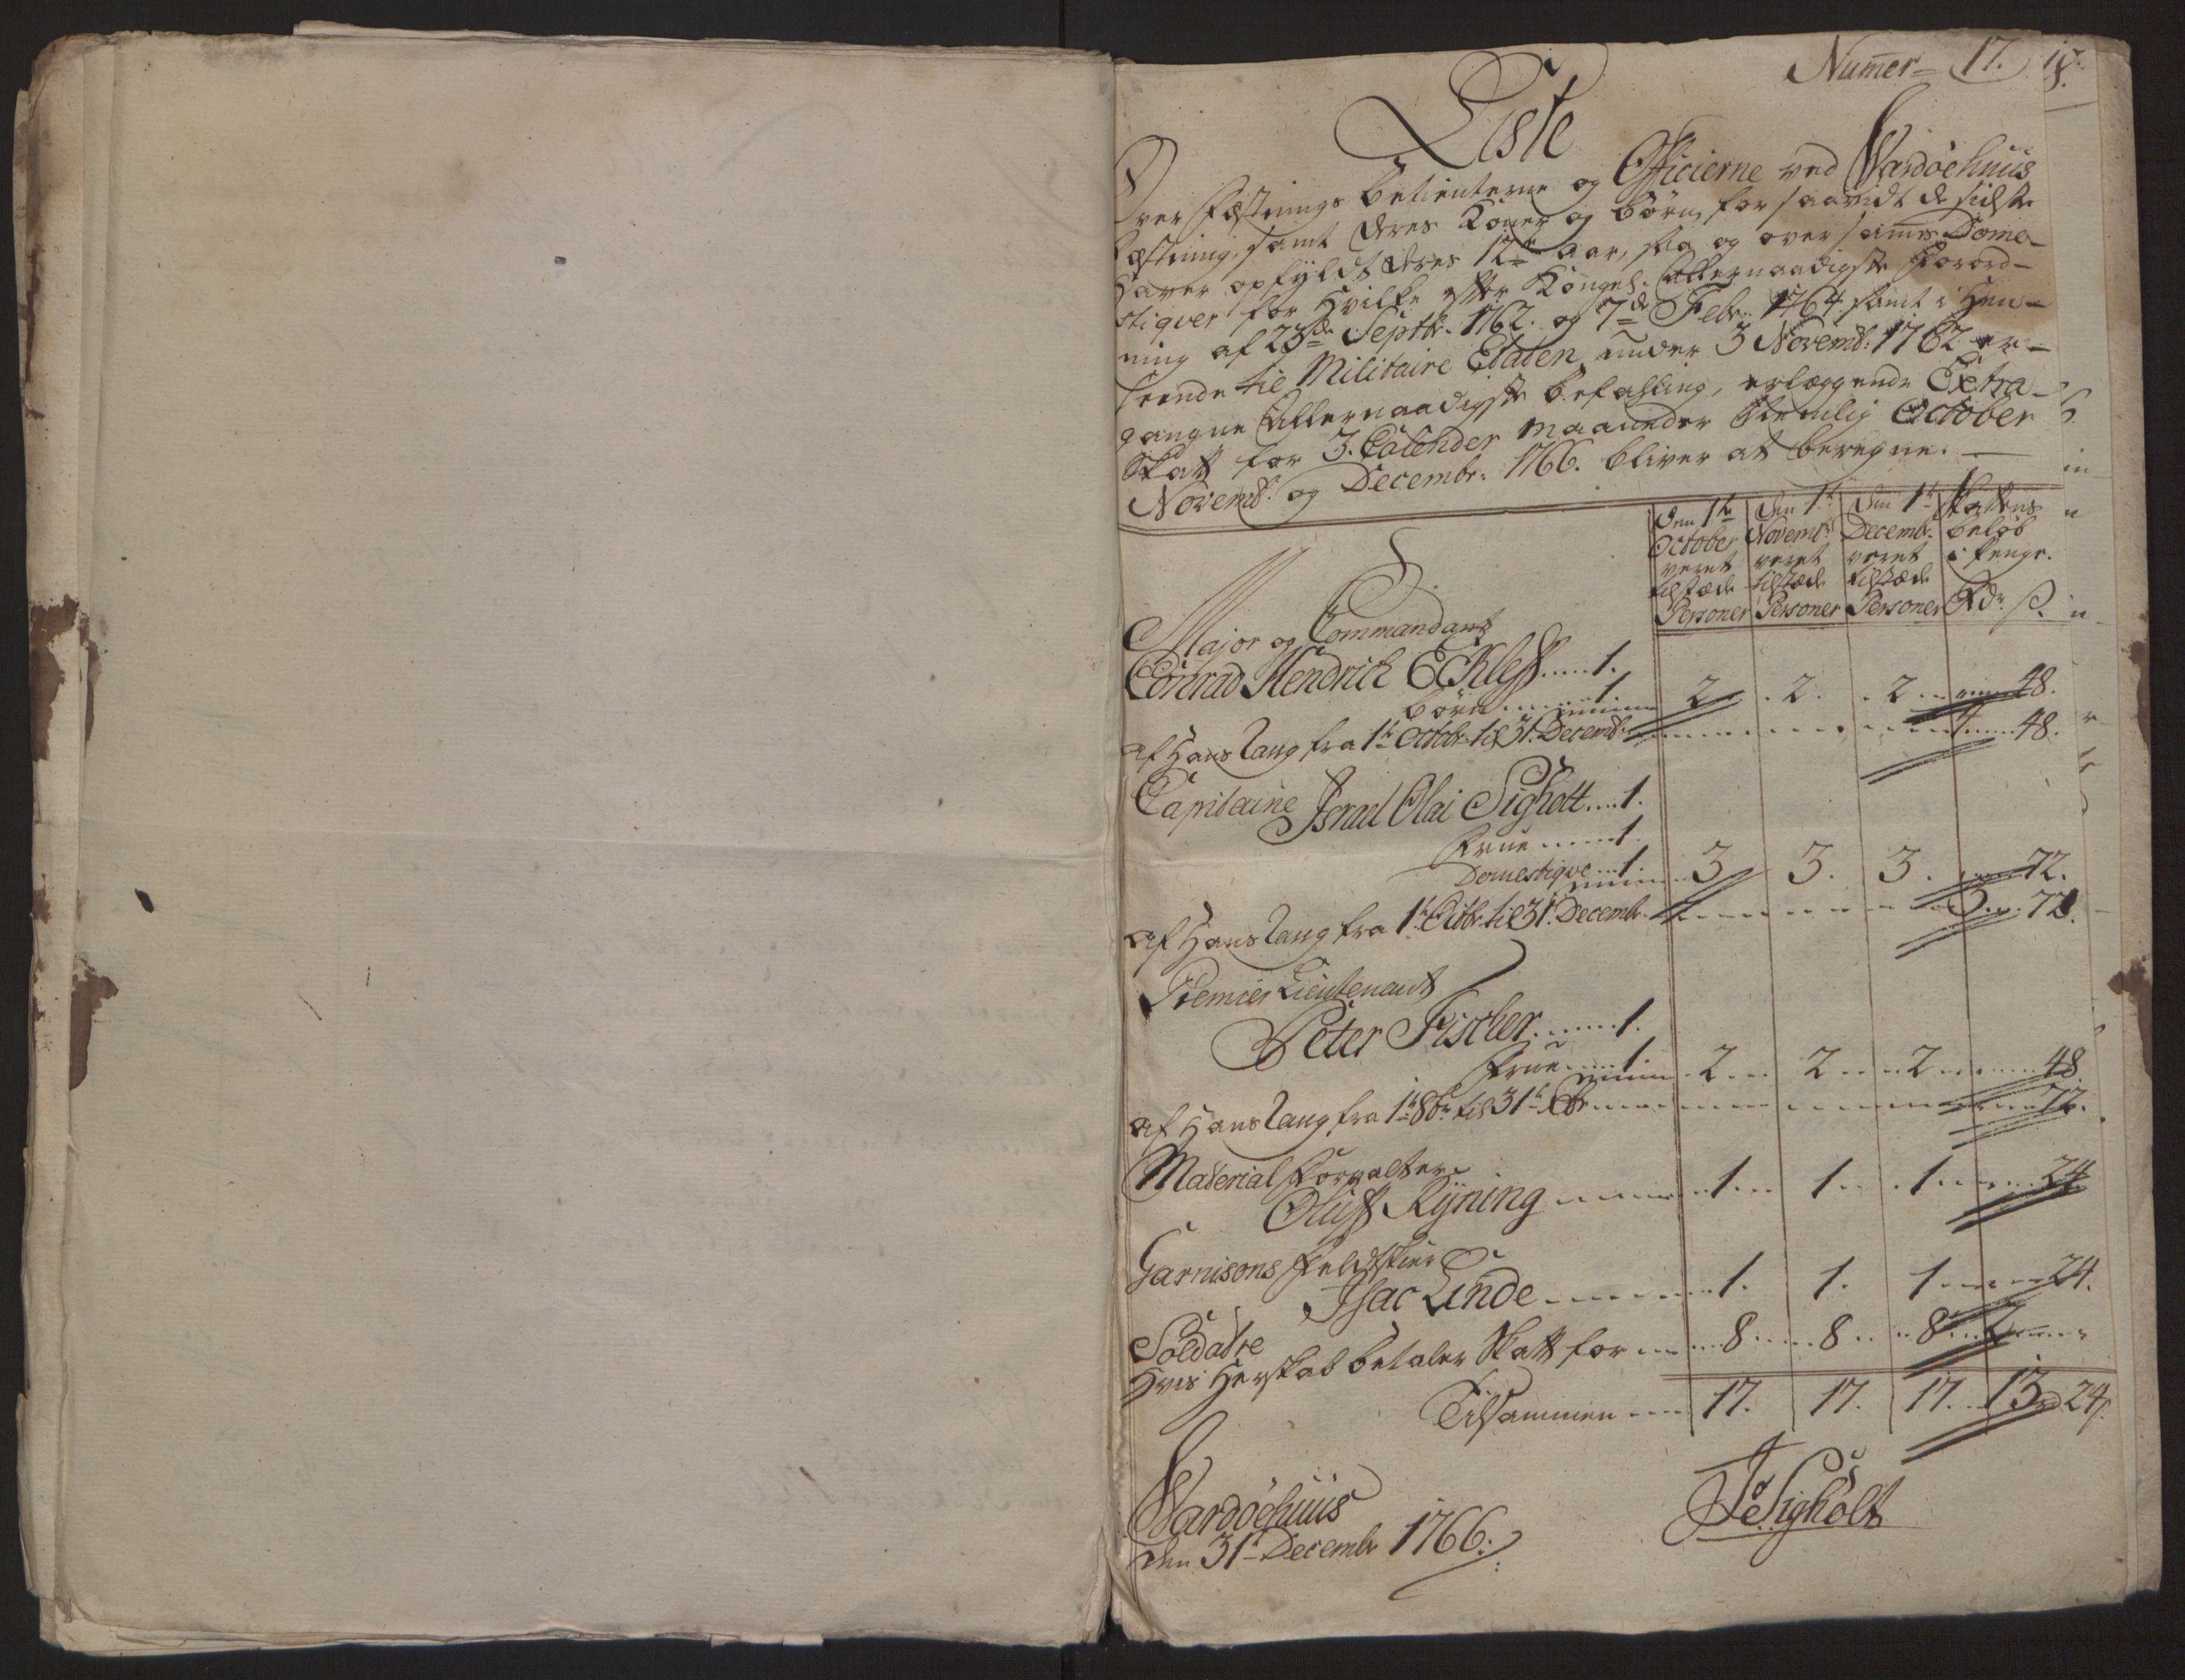 Numer= 17. 18.
Liste
Over Fæstnings betienterne og Officierne ved Wardöehuus
Fæstning, samt deres Koner og börn, for saavidt de sidste
haver opfyldt deres 12te aar, saa og over sammes Dome-
stiqver for hvilke efter Kongel: Allernaadigste Forord-
ning af 23de Septbr: 1762. og 7de Febr: 1764. samt i Hen-
seende til Militaire Etaten under 3 Novemb: 1762 er-
gangne Allernaadigste befalling, erlæggende Extra-
Skatt for 3. Calender maaneder Nemlig October
Novemb: og Decembr: 1766. bliver at beregne.
Den 1te October veret tilstæde Personer
Den 1te Novembr veret tilstæde Personer
Den 1te Decembr. veret tilstæde Personer
Skattens beløb i Penge. Rdr. ß.
Major og Commandant
Conrad Hendrich Ecklef.....1.
börn.....1. 2 . 2. . 2 .... 48.
af Hans Rang fra 1te Octobr til 31. Decembr: ..... 4 .... 48.
Capitaine Israel Olai Sigholt....1.
Frue.....1.
Domestiqve...1. 3 3. 3. .... 72.
af Hans Rang fra 1te Octbr. til 31. Decembr. ..... 3... 72.
Premier Lieutenant
Peter Fischer......1.
Frue.....1. 2... 2... 2 ...... 48
af Hans Rang fra 1te 8br til 31te Xbr ..... 72.
Material Forvalter
Oluff Rÿning ..... 1... 1... 1 ..... 24
Garnisons Feldtskier
Isac Linde ..... 1. 1. 1 ..... 24.
Soldatre
Hvis Herskab betaler Skatt for .... 8.... 8... 8... 2 ....
Tilsammen .... 17. 17. 17. 13 rd 24ß.
Wardöehuus
den 31te Decembr 1766.
JO Sigholt